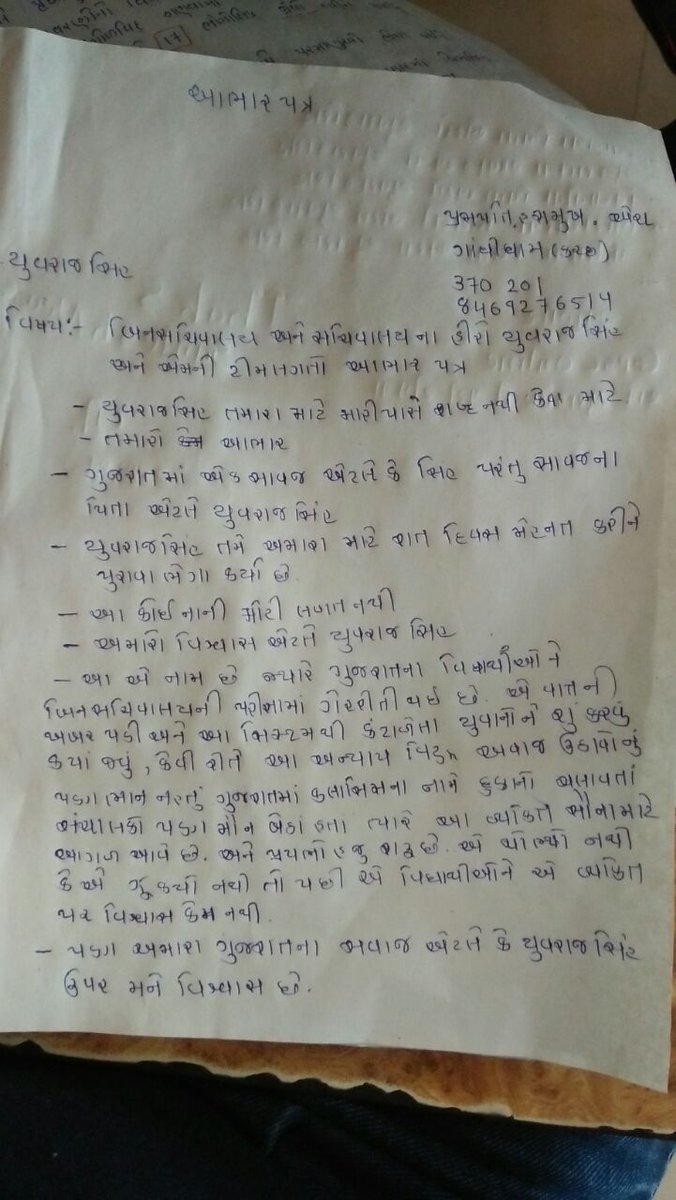 આભાર પત્ર
પ્રજાપતિ હસમુખ . એચ
ગાંધીધામ (કચ્છ)
370 201
8469276514
યુવરાજ સિંહ
વિષય:- બિનસચિવાલય અને સચિવાલય ના હીરો યુવરાજ સિંહ
અને એમની ટીમ લગતો આભાર પત્ર
- યુવરાજસિંહ તમારા માટે મારી પાસે શબ્દ નથી કેવા માટે
- તમારો આભાર
- ગુજરાત માં એક સાવજ એટલે કે સિંહ પરંતુ સાવજ ના
પિતા એટલે યુવરાજસિંહ
- યુવરાજસિંહ તમે અમારા માટે રાત દિવસ મેહનત કરીને
પુરાવા ભેગા કર્યા છે.
- આ કોઈ નાની મોટી લડત નથી
- અમારો વિશ્વાસ એટલે યુવરાજ સિંહ
- આ એ નામ છે જ્યારે ગુજરાતના વિદ્યાર્થીઓને
બિનસચિવાલયની પરીક્ષામાં ગેરરીતી થઈ છે. એ વાત ની
ખબર પડી અને આ સિસ્ટમથી કંટાળેલા યુવાનોને શું કરવું
કયાં જવું, કેવી રીતે આ અન્યાય વિરુદ્ધ અવાજ ઉઠાવોનું
પણ ભાન નહતું ગુજરાતમાં કલાસિસના નામે દુકાનો ચલાવતાં
સંચાલકો પણ મૌન બેઠાં હતા ત્યારે આ વ્યકિત સૌના માટે
આગળ આવે છે. અને પ્રયત્નો હજુ શરૂ છે. એ થોભ્યો નથી
કે એ ઝૂકયો નથી તો પછી એ વિદ્યાર્થીઓને એ વ્યકિત
પર વિશ્વાસ કેમ નથી.
- પણ અમારા ગુજરાતના અવાજ એટલે કે યુવરાજ સિંહ
ઉપર મને વિશ્વાસ છે.